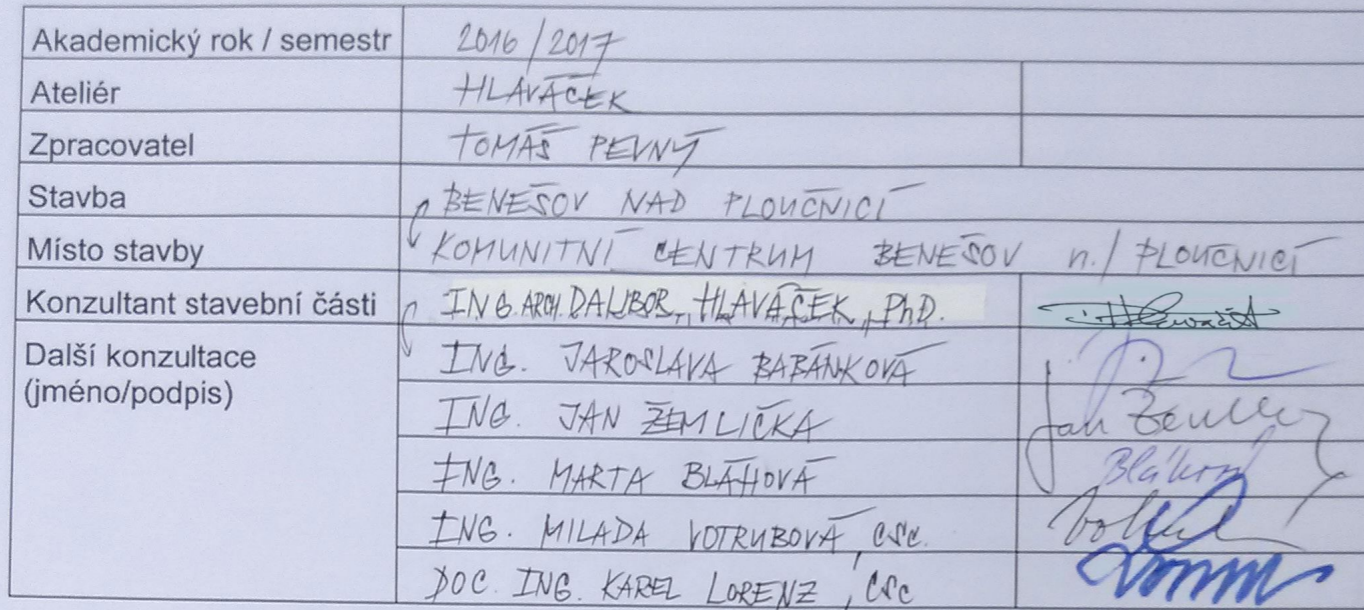 Akademický rok / semestr 2016/2017
Ateliér HLAVÁČEK
Zpracovatel TOMÁŠ PEVNÝ
Stavba BENEŠOV NAD PLOUČNICÍ
Místo stavby KOMUNITNÍ CENTRUM BENEŠOV n./PLOUČNICÍ
Konzultant stavební části ING.ARCH.DALIBOR HLAVÁČEK, PhD. Hlaváček
Další konzultace ING. JAROSLAVA BABÁNKOVÁ
(jméno/podpis)
ING. JAN ŽEMLIČKA Jan
ING. MARTA BLÁHOVÁ Bláhová
ING. MILADA VOTRUBOVÁ, CSc.
DOC. ING. KAREL LORENZ, CSc